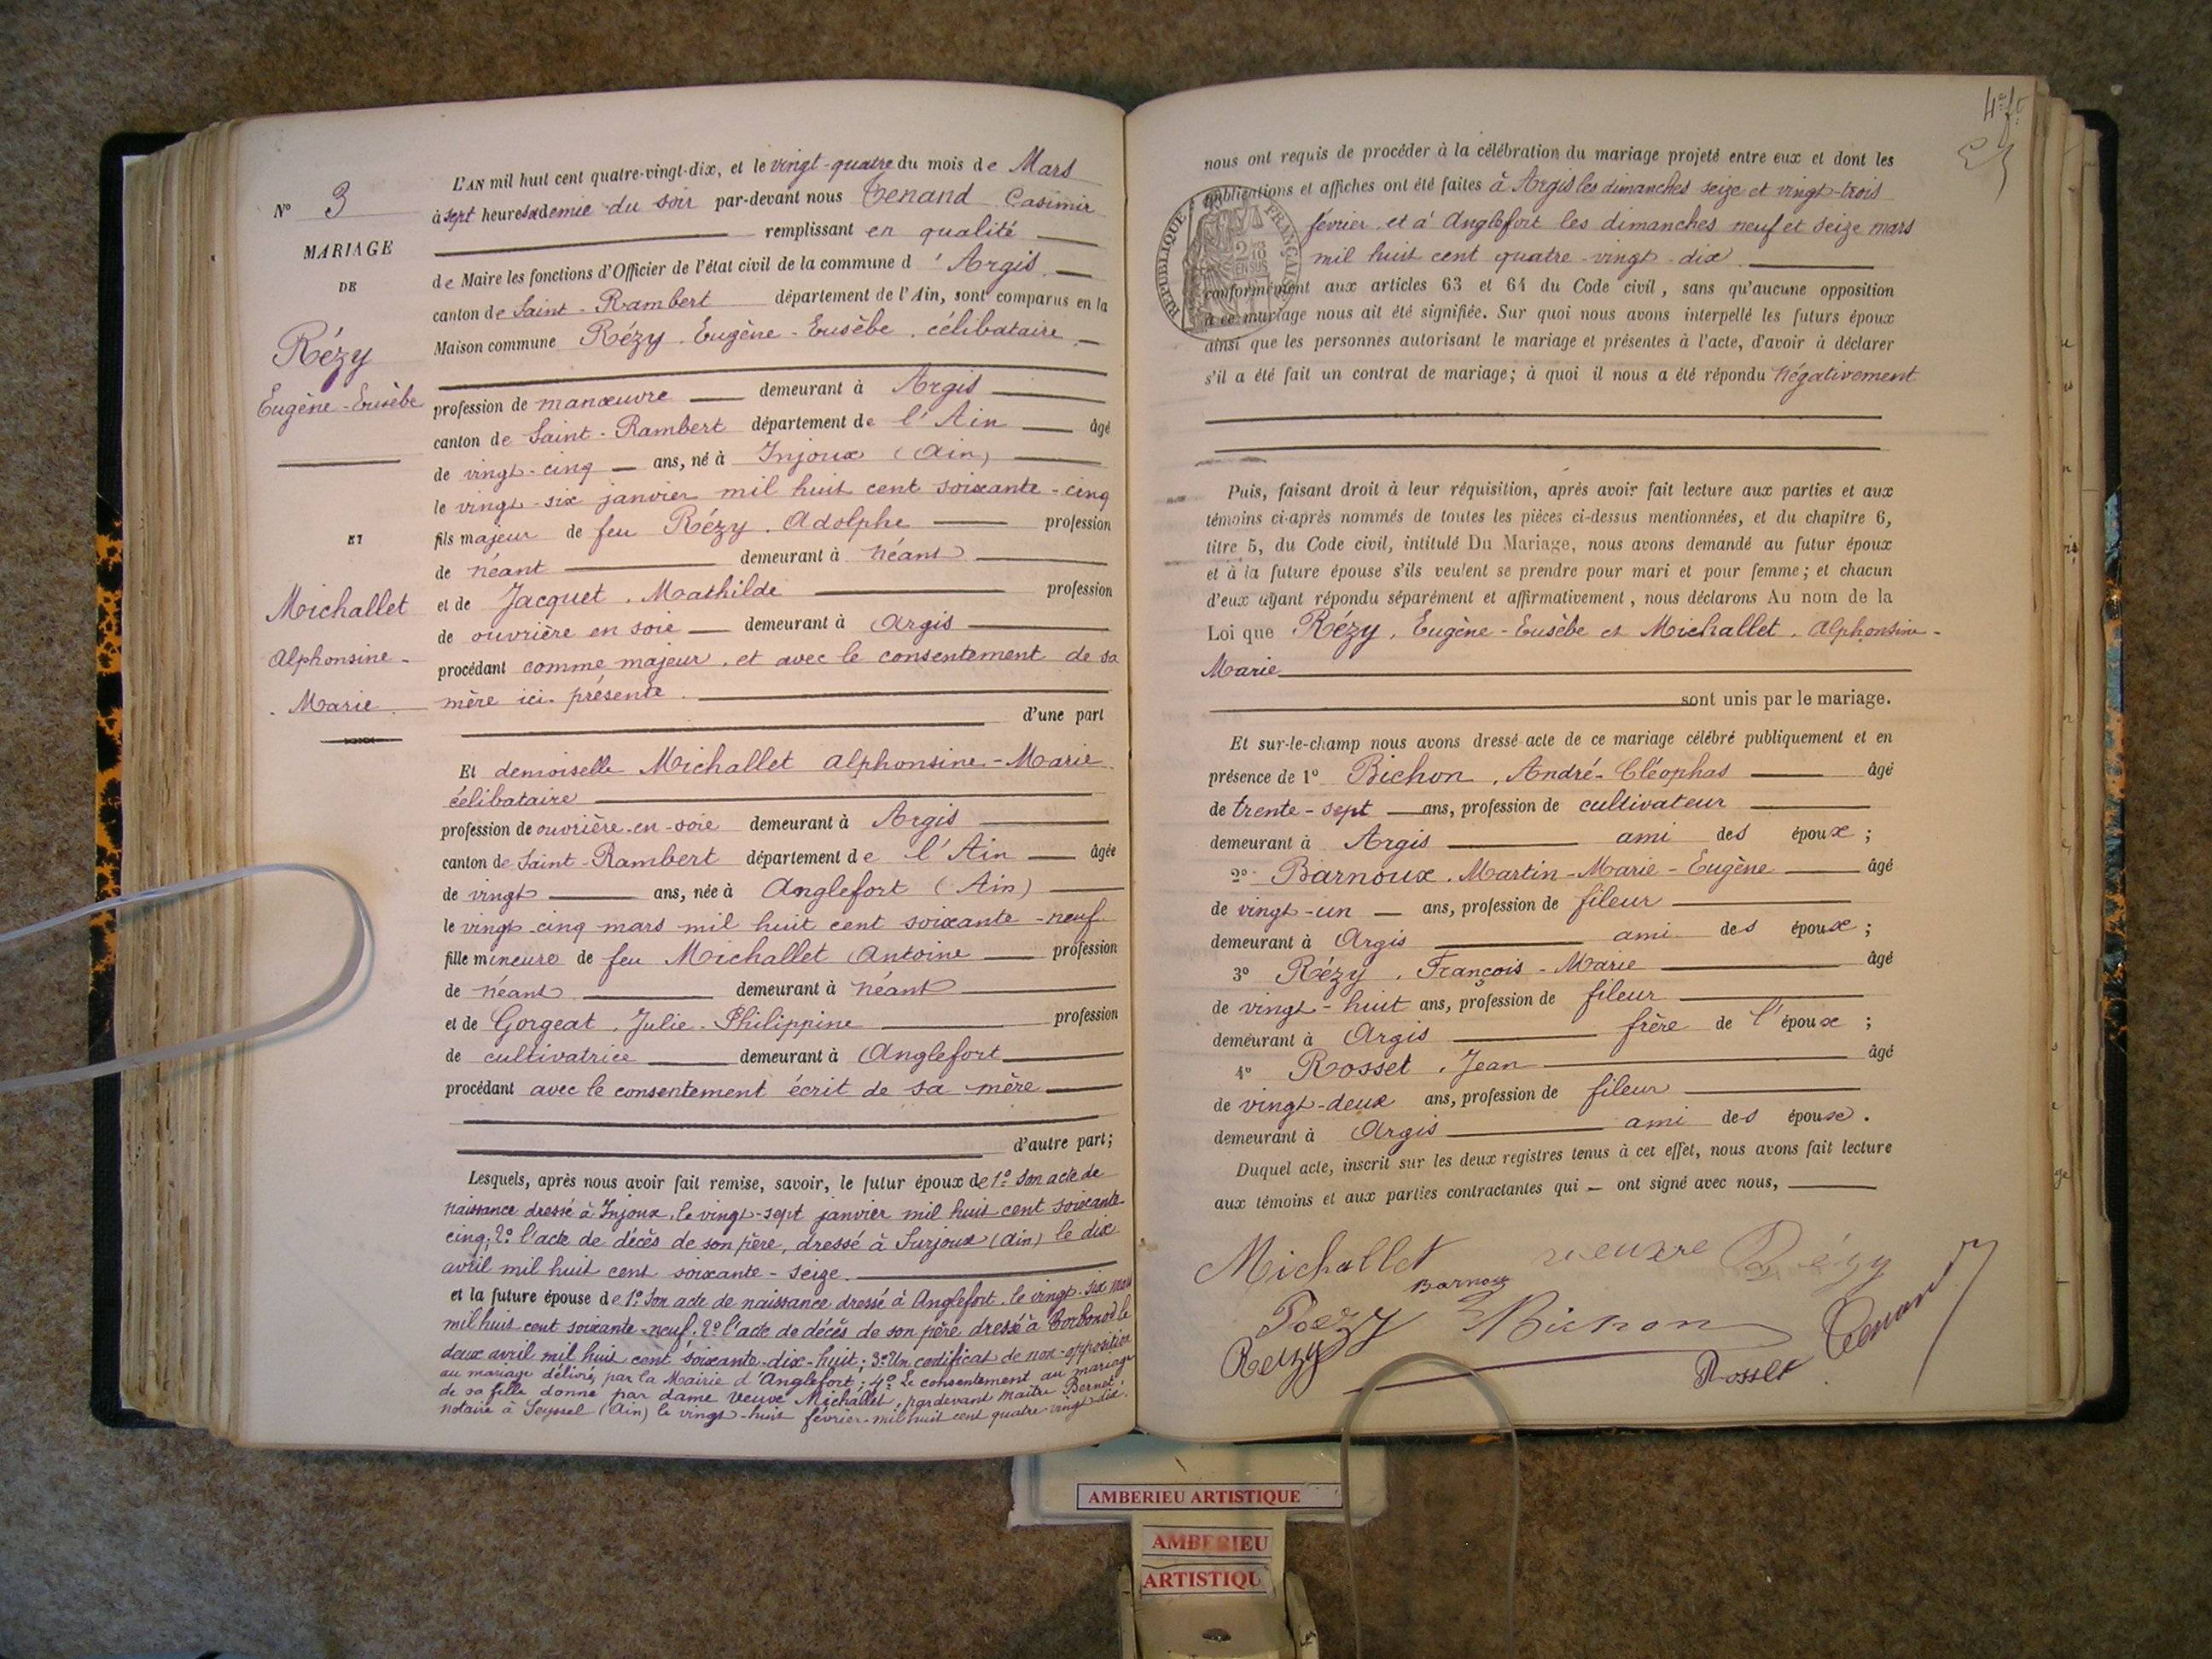 N° 3
MARIAGE
DE
Rézy
Eugène-Eusèbe
ET
Michallet
Alphonsine-
Marie
L'AN mil huit cent quatre-vingt-dix, et le vingt-quatre du mois de Mars
à sept heures & demie du soir par-devant nous Tenand Casimir
remplissant en qualité
de Maire les fonctions d'Officier de l'état civil de la commune d'Argis
canton de Saint-Rambert département de l'Ain, sont comparus en la
Maison commune Rézy, Eugène-Eusèbe, célibataire
profession de manœuvre demeurant à Argis
canton de Saint-Rambert département de l'Ain âgé
de vingt-cinq ans, né à Injoux (Ain)
le vingt-six janvier mil huit cent soixante-cinq
fils majeur de feu Rézy, Adolphe profession
de néant demeurant à néant
et de Jacquet, Mathilde profession
de ouvrière en soie demeurant à Argis
procédant comme majeur, et avec le consentement de sa
mère ici présente.
d'une part
Et demoiselle Michallet Alphonsine-Marie
célibataire
profession de ouvrière-en-soie demeurant à Argis
canton de Saint-Rambert département de l'Ain âgée
de vingt ans, née à Anglefort (Ain)
le vingt-cinq mars mil huit cent soixante-neuf
fille mineure de feu Michallet Antoine profession
de néant demeurant à néant
et de Gorgeat, Julie-Philippine profession
de cultivatrice demeurant à Anglefort
procédant avec le consentement écrit de sa mère
d'autre part;
Lesquels, après nous avoir fait remise, savoir, le futur époux de 1° son acte de
naissance dressé à Injoux, le vingt-sept janvier mil huit cent soixante
cinq; 2° l'acte de décès de son père, dressé à Surjoux (Ain) le dix
avril mil huit cent soixante-seize.
et la future épouse de 1° son acte de naissance dressé à Anglefort, le vingt-six mars
mil huit cent soixante-neuf. 2° l'acte de décès de son père dressé à Corbonod le
deux avril mil huit cent soixante-dix-huit; 3° Un certificat de non-opposition
au mariage délivré par la Mairie d'Anglefort; 4° Le consentement au mariage
de sa fille donné par dame Veuve Michallet, pardevant Maître Bernet,
notaire à Seyssel (Ain) le vingt-huit février mil huit cent quatre-vingt-dix.
nous ont requis de procéder à la célébration du mariage projeté entre eux et dont les
publications et affiches ont été faites à Argis les dimanches seize et vingt-trois
février, et à Anglefort les dimanches neuf et seize mars
mil huit cent quatre-vingt-dix
RÉPUBLIQUE FRANÇAISE
2/10 EN SUS
conformément aux articles 63 et 64 du Code civil, sans qu'aucune opposition
à ce mariage nous ait été signifiée. Sur quoi nous avons interpellé les futurs époux
ainsi que les personnes autorisant le mariage et présentes à l'acte, d'avoir à déclarer
s'il a été fait un contrat de mariage; à quoi il nous a été répondu négativement
Puis, faisant droit à leur réquisition, après avoir fait lecture aux parties et aux
témoins ci-après nommés de toutes les pièces ci-dessus mentionnées, et du chapitre 6,
titre 5, du Code civil, intitulé Du Mariage, nous avons demandé au futur époux
et à la future épouse s'ils veulent se prendre pour mari et pour femme; et chacun
d'eux ayant répondu séparément et affirmativement, nous déclarons Au nom de la
Loi que Rézy, Eugène-Eusèbe et Michallet, Alphonsine-
Marie
sont unis par le mariage.
Et sur-le-champ nous avons dressé acte de ce mariage célébré publiquement et en
présence de 1° Bichon, André-Cléophas âgé
de trente-sept ans, profession de cultivateur
demeurant à Argis ami des époux;
2° Barnoux, Martin-Marie-Eugène âgé
de vingt-un ans, profession de fileur
demeurant à Argis ami des époux;
3° Rézy, François-Marie âgé
de vingt-huit ans, profession de fileur
demeurant à Argis frère de l'époux;
4° Rosset, Jean âgé
de vingt-deux ans, profession de fileur
demeurant à Argis ami des époux.
Duquel acte, inscrit sur les deux registres tenus à cet effet, nous avons fait lecture
aux témoins et aux parties contractantes qui ont signé avec nous,
Michallet veuve Rézy
Barnoux
Rezy Bichon Tenand
Rezy
Rosset
AMBERIEU ARTISTIQUE
AMBERIEU
ARTISTIQU